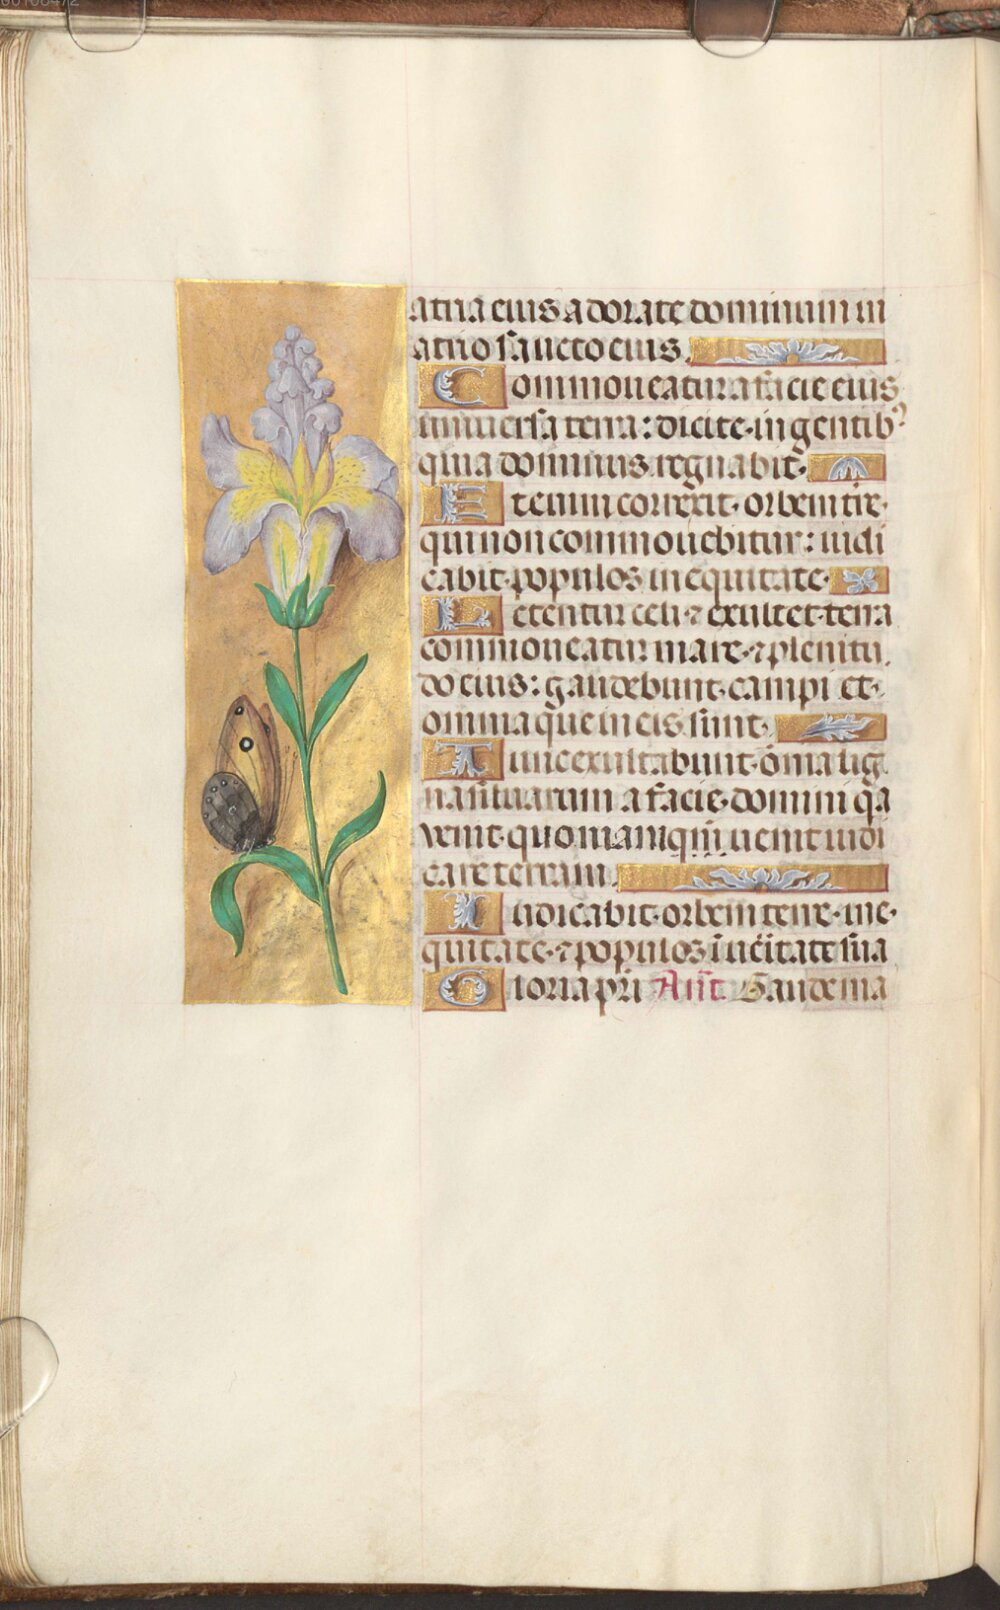 atria eius adorate dominum in
atrio sancto eius.
Commoueatur a facie eius
uniuersa terra: dicite in gentib⁹
quia dominus regnabit.
Etenim correxit orbem tre.
qui non commouebitur: iudi
cabit populos in equitate.
Letentur celi ⁊ exultet terra
commoueatur mare ⁊ plenitu
do eius: gaudebunt campi et
omnia que in eis sunt.
Tunc exultabunt om̄ia lig
na siluarum a facie domini q̄a
venit quoniam qm̄ uenit iudi
care terram.
Iudicabit orbem terre in e
quitate ⁊ populos in ueritate sua
Gloria pri Ant. Gaude ma